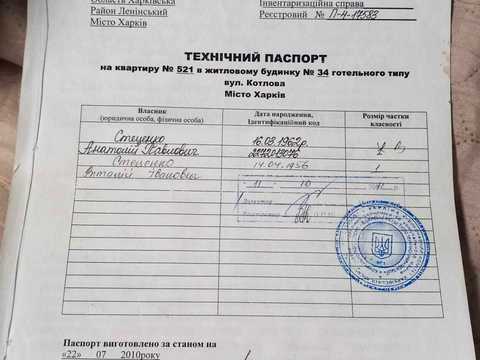 Область Харківська
Район Ленінський
Місто Харків
Інвентаризаційна справа
Реєстровий № П-4-17583
ТЕХНІЧНИЙ ПАСПОРТ
на квартиру № 521 в житловому будинку № 34 готельного типу
вул. Котлова
Місто Харків
Власник
(юридична особа, фізична особа)
Дата народження,
Ідентифікаційний код
Розмір частки
власності
Стеценко
Анатолій Павлович
16.03.1962р.
Стеценко
Віталій Іванович
14.04.1956
1
11 10
Паспорт виготовлено за станом на
«22» 07 2010року